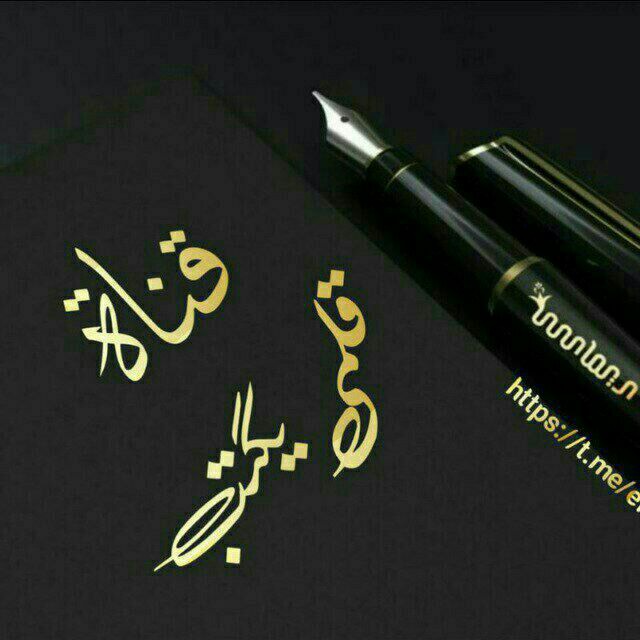 قناة
قلمى
يكتب
https://t.me/e